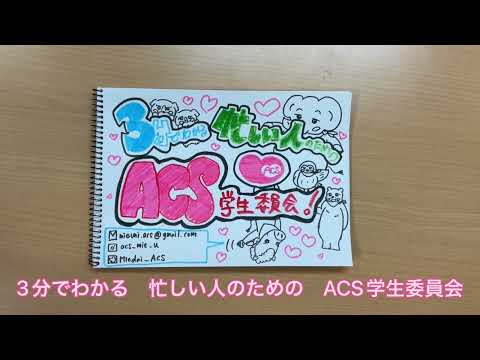 3分でわかる
忙しい人のための
ACS
ACS
学生委員会!
mieuni.acs@gmail.com
acs_mie_u
Miedai_Acs
3分でわかる 忙しい人のための ACS学生委員会